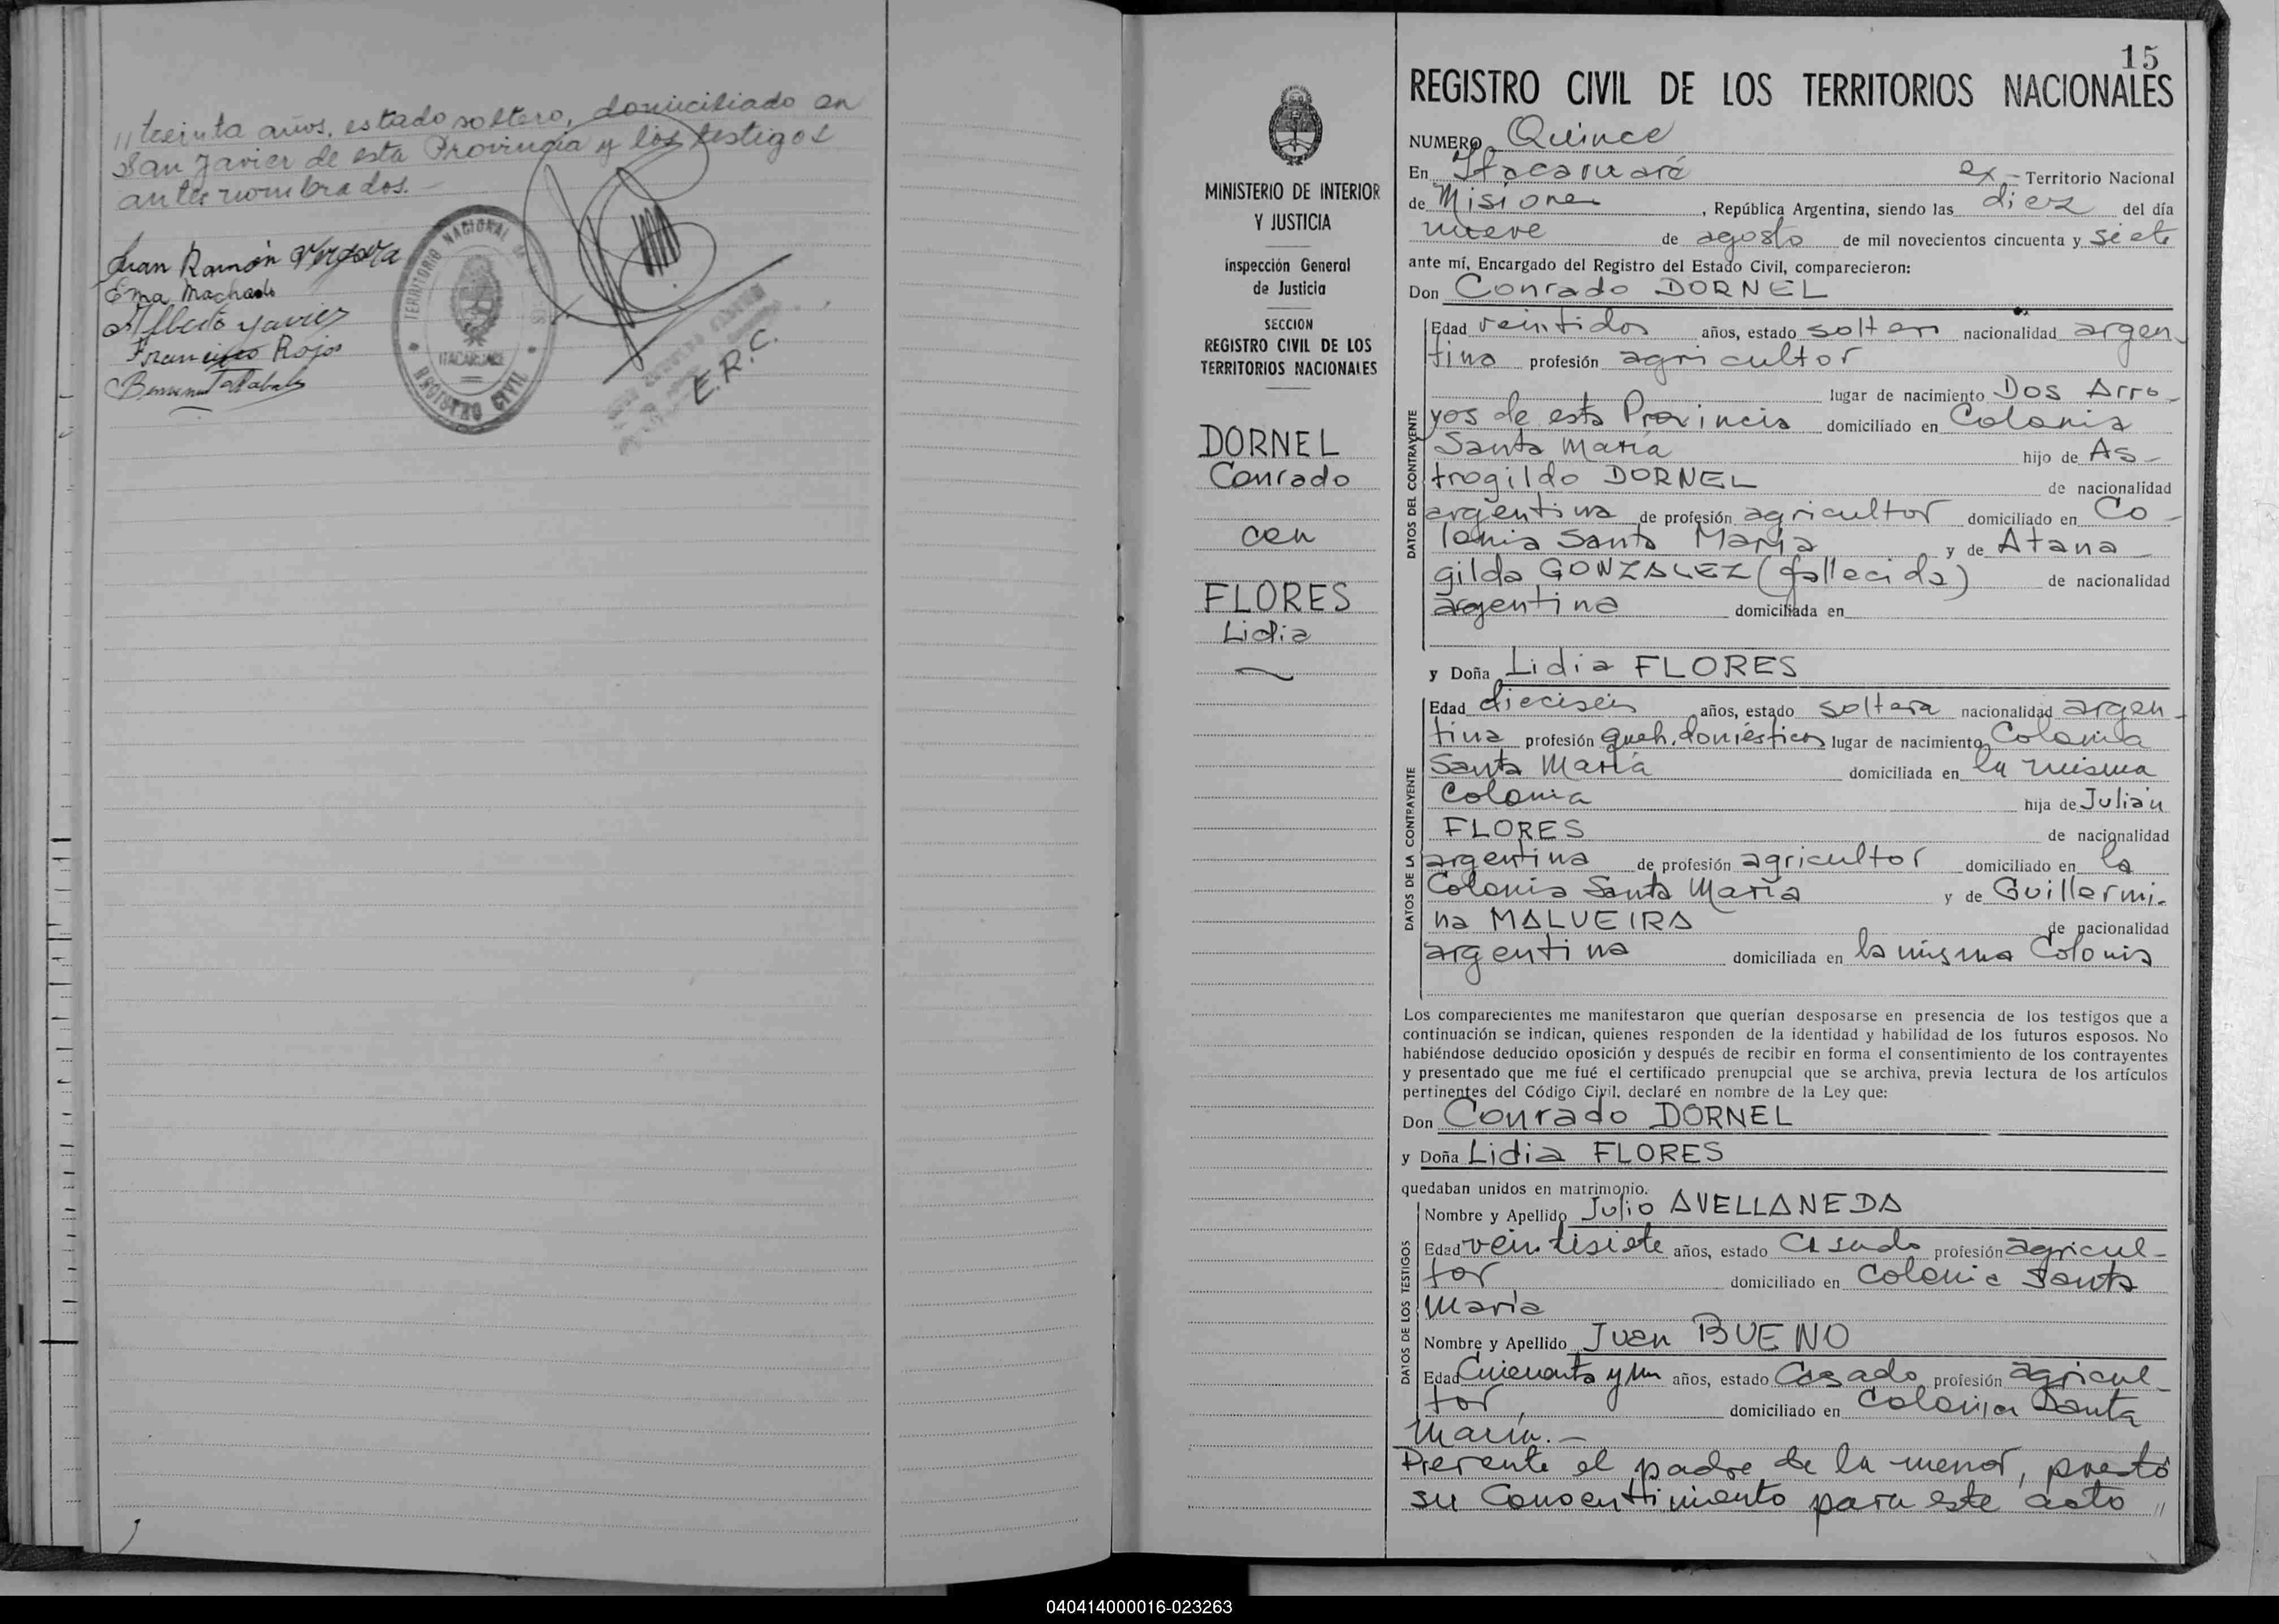 // treinta años, estado soltero, domiciliado en
San Javier de esta Provincia y los testigos
antes nombrados.-
Juan Ramón Vergara
Ema Machado
Alberto Javier
Francisco Rojo
TERRITORIO NACIONAL
ITACARUARE
REGISTRO CIVIL
E.R.C.
MINISTERIO DE INTERIOR
Y JUSTICIA
inspección General
de Justicia
SECCION
REGISTRO CIVIL DE LOS
TERRITORIOS NACIONALES
DORNEL
Conrado
con
FLORES
Lidia
15
REGISTRO CIVIL DE LOS TERRITORIOS NACIONALES
NUMERO Quince
En Itacaruaré ex- Territorio Nacional
de Misiones, República Argentina, siendo las diez del día
nueve de agosto de mil novecientos cincuenta y siete
ante mí, Encargado del Registro del Estado Civil, comparecieron:
Don Conrado DORNEL
DATOS DEL CONTRAYENTE
Edad veintidos años, estado soltero nacionalidad argen-
tina profesión agricultor
lugar de nacimiento Dos Arro-
yos de esta Provincia domiciliado en Colonia
Santa María hijo de As-
trogildo DORNEL de nacionalidad
argentina de profesión agricultor domiciliado en Co-
lonia Santa María y de Atana-
gilda GONZALEZ (fallecida) de nacionalidad
argentina domiciliada en
y Doña Lidia FLORES
DATOS DE LA CONTRAYENTE
Edad dieciseis años, estado soltera nacionalidad argen-
tina profesión queh. domésticos lugar de nacimiento Colonia
Santa María domiciliada en la misma
Colonia hija de Julián
FLORES de nacionalidad
argentina de profesión agricultor domiciliado en la
Colonia Santa María y de Guillermi-
na MALUEIRA de nacionalidad
argentina domiciliada en la misma Colonia
Los comparecientes me manifestaron que querían desposarse en presencia de los testigos que a
continuación se indican, quienes responden de la identidad y habilidad de los futuros esposos. No
habiéndose deducido oposición y después de recibir en forma el consentimiento de los contrayentes
y presentado que me fué el certificado prenupcial que se archiva, previa lectura de los artículos
pertinentes del Código Civil, declaré en nombre de la Ley que:
Don Conrado DORNEL
y Doña Lidia FLORES
quedaban unidos en matrimonio.
DATOS DE LOS TESTIGOS
Nombre y Apellido Julio AVELLANEDA
Edad veintisiete años, estado casado profesión agricul-
tor domiciliado en Colonia Santa
María
Nombre y Apellido Juan BUENO
Edad Cincuenta y un años, estado Casado profesión agricul-
tor domiciliado en Colonia Santa
María.-
Presente el padre de la menor, prestó
su Consentimiento para este acto //
040414000016-023263